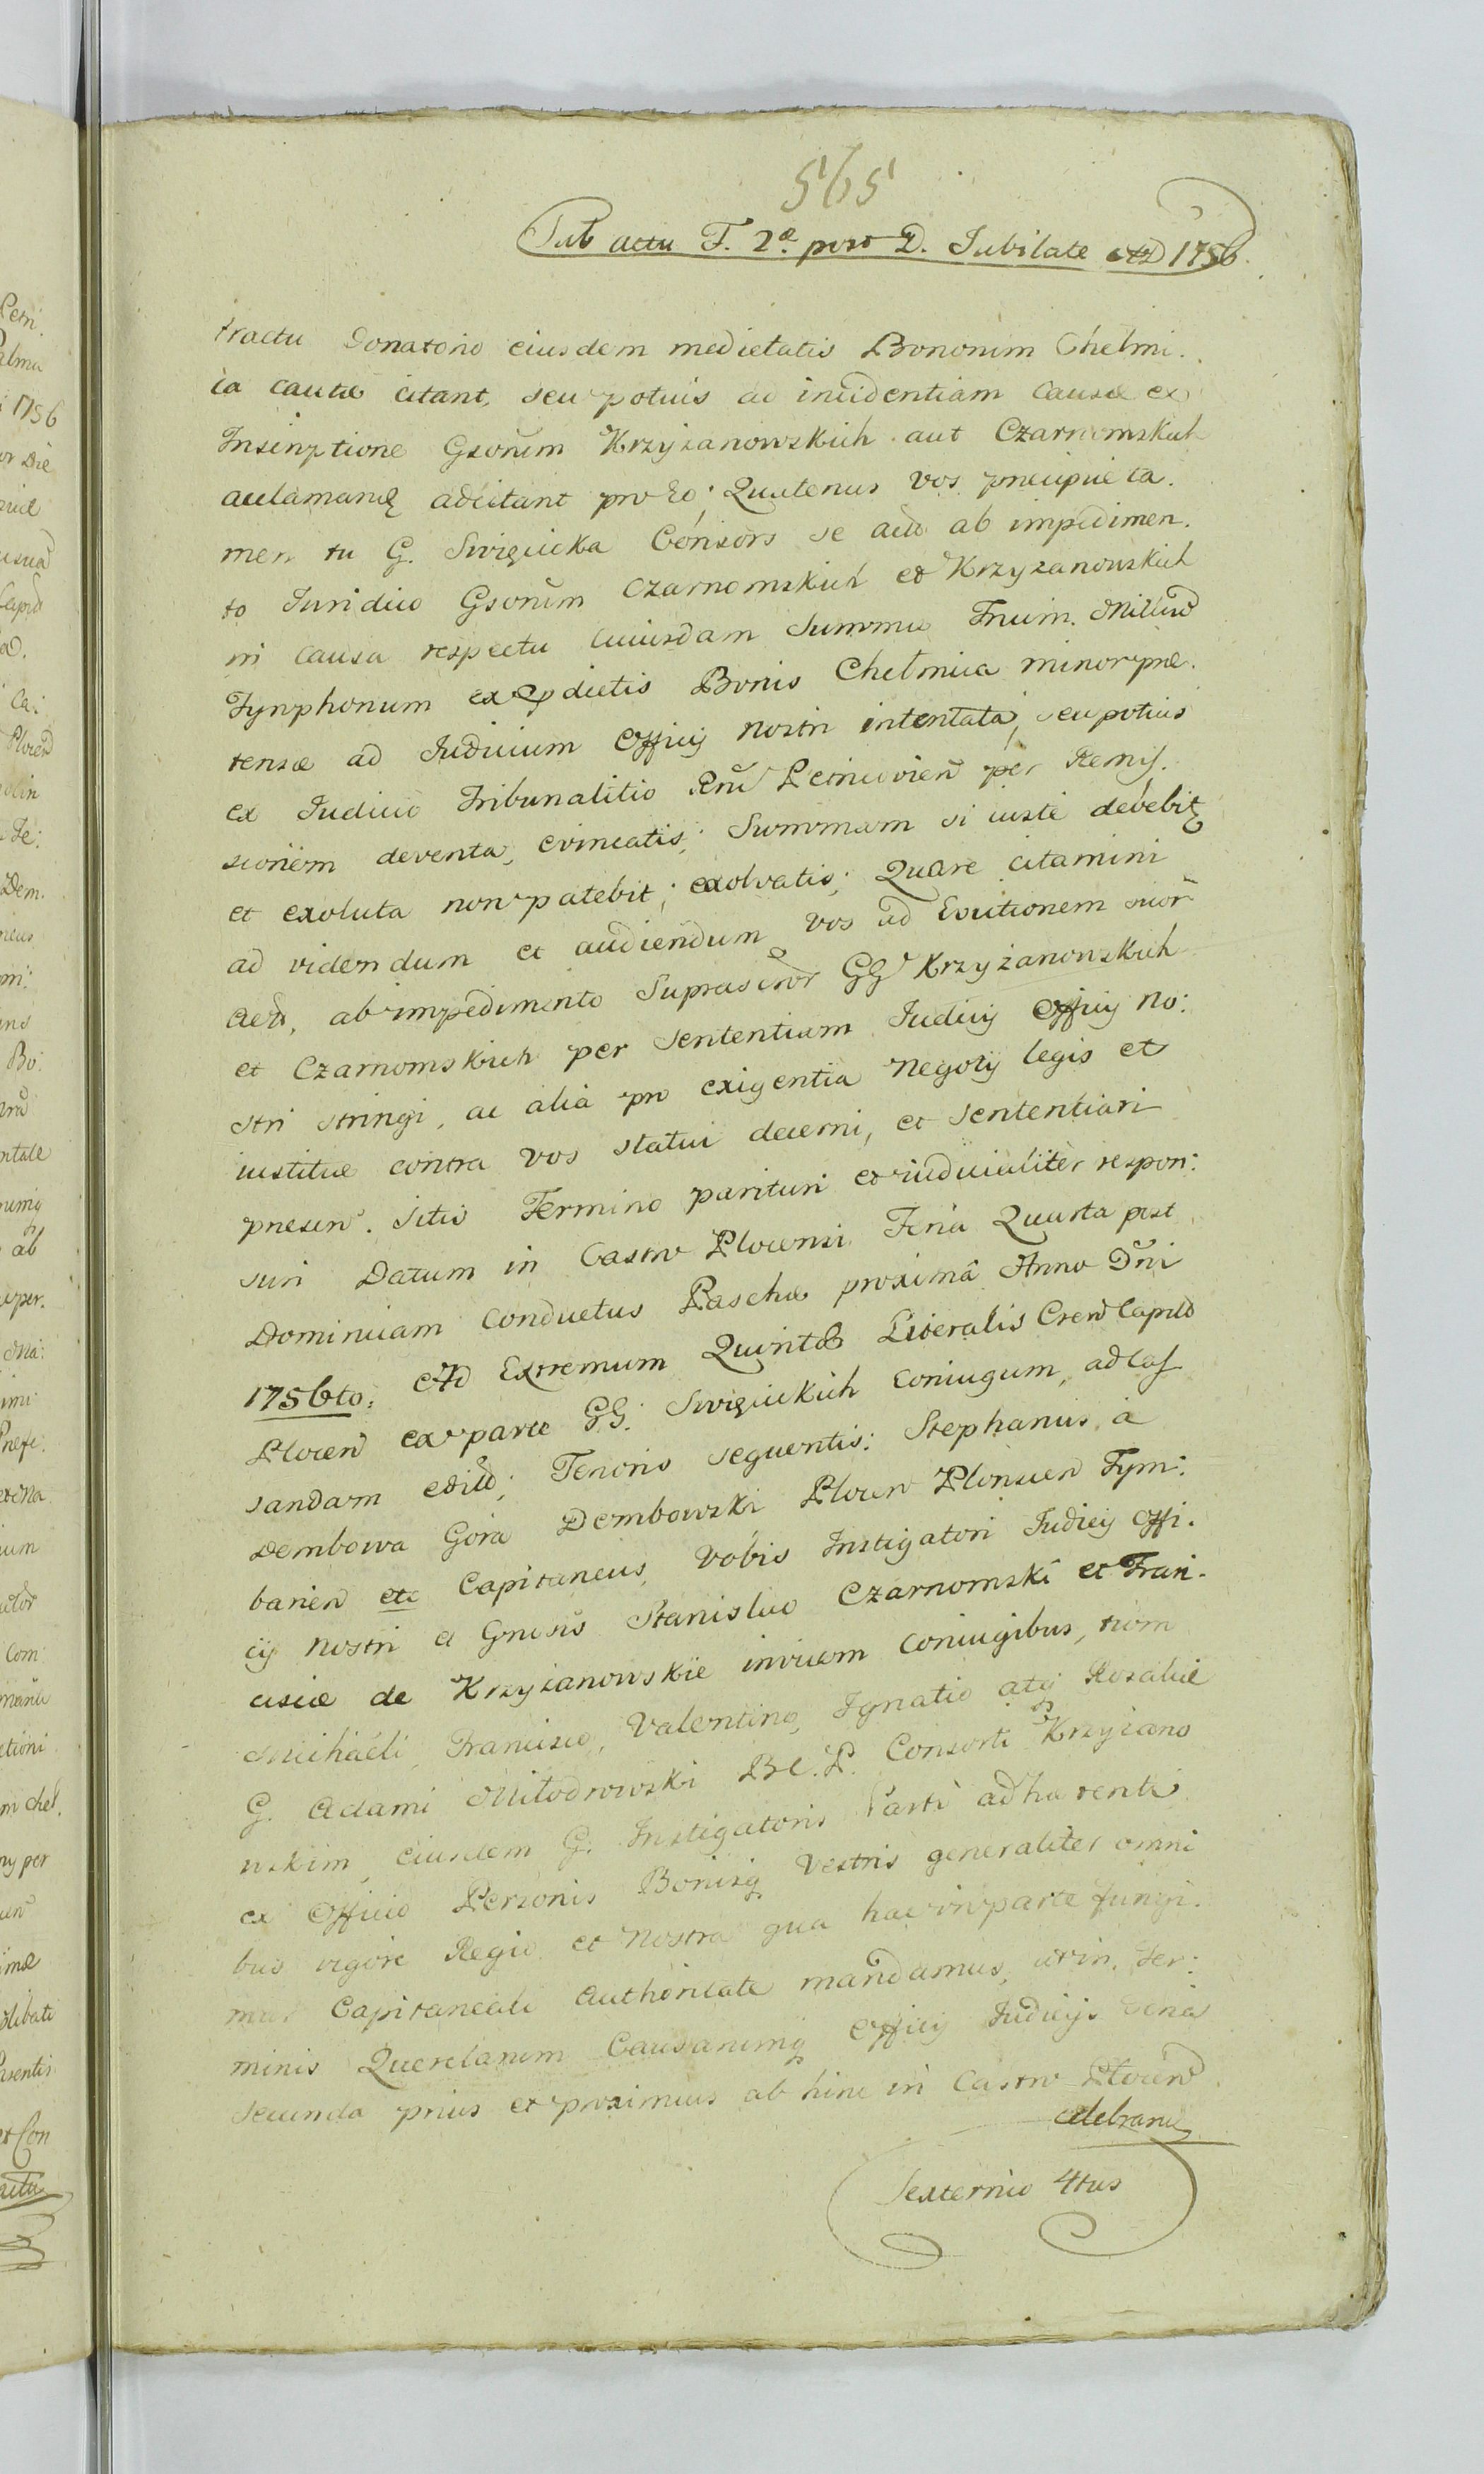 565
Sub actu F. 2ã post D. Jubilate AD 1756
tractu Donatorio eiusdem medietatis Bonorum Chelmi.
ca caute citant, seu potius ad incidentiam causæ ex
Inscriptione Gsorum Krzyżanowskich aut Czarnomskich
acclamandę adcitant pro eo; Quatenus vos præcipue ta.
men tu G. Swięcicka Consors se ab impedimen.
to Juridico Gsorum Czarnomskich et Krzyżanowskich
in causa respectu cuiusdam Summæ Trium. Millium
Tynphonum ex dictis Bonis Chelmica minor præ.
tensæ ad Judicium Officij nostri intentata, seu potius
ex Judicio Tribunalitio Petricovien per Remis.
sionem deventa, evincatis; Summam si iuste debebit
et exoluta non patebit; exolvatis; Quare citamini
ad videndum et audiendum vos ad Evictionem suor
ab impedimento Suprascror GG Krzyżanowskich
et Czarnomskich per Sententiam Judicij Officij no:
stri stringi, ac alia pro exigentia negotij legis et
iustitiæ contra vos statui decerni, et sententiari
præsen. Sitis Termino parituri et iudicialiter respon:
suri Datum in Castro Plocensi Feria Quarta post
Dominicam Conductus Paschæ proxima Anno Dni
1756to. Ad Extremum Quintæ Literalis Cren Capld
Plocen ex parte GG. Swięcickich Coniugum, ad Cas
sandam edild; Tenoris sequentis: Stephanus à
Dembowa Góra Dembowski Plocen Plonscen Tym:
barien etc Capitaneus, Vobis Instigatori Judicij Offi.
cij nostri et Gnosis Stanislao Czarnomski et Fran.
cisca de Krzyżanowskie invicem Coniugibus, tum
Michaeli, Francisco, Valentino, Ignatio atq Rosaliæ
G. Adami Miłodrowski B.C.P. Consorti Krzyżano
wskim, eiusdem G. Instigatoris Parti adhærenti
ex Officio Personis Bonisq Vestris generaliter omni
bus vigore Regia et nostra qua hac in parte fungi.
mur Capitaneali Authoritate mandamus, ut in Ter:
minis Querelarum Causarumq Officij Judicijs Feria
Secunda prius et proximius ab hinc in Castro Plocen
celebran
Sexternio 4tus